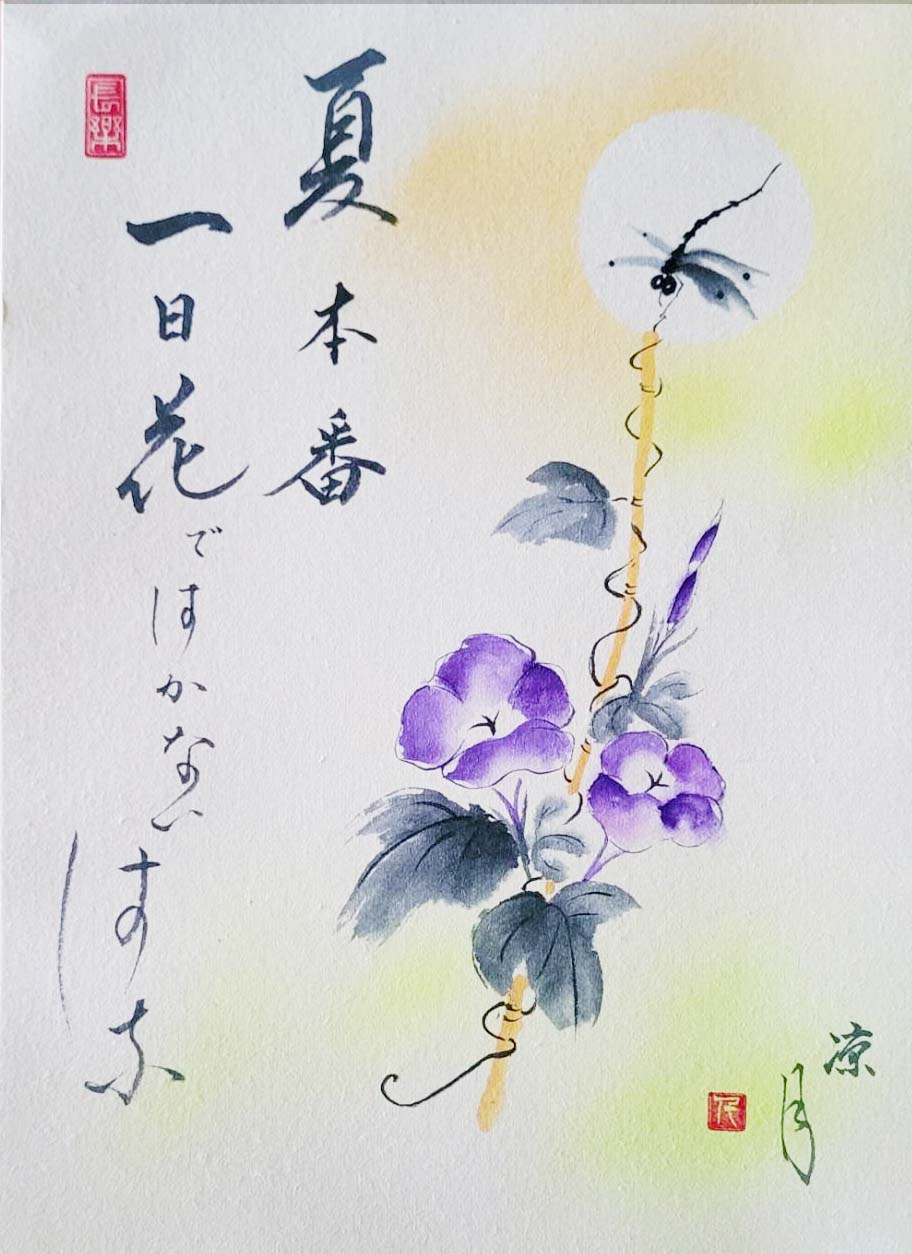 長樂
夏本番
一日花ではかないはなし
涼月